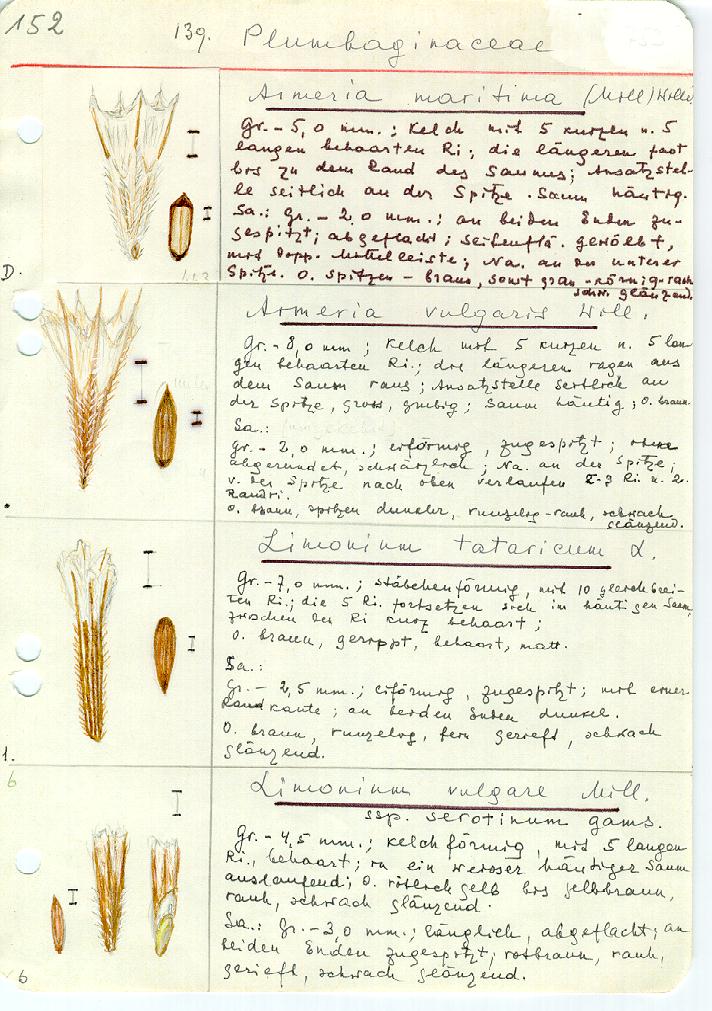 152
139. Plumbaginaceae
Armeria maritima (Mill) Willd
Gr. - 5,0 mm.; Kelch mit 5 kurzen u. 5
langen behaarten Ri; die längeren fast
bis zu dem Rand des Saumes; Ansatzstel-
le seitlich an der Spitze. Saum häutig.
Sa.: Gr. - 2,0 mm.; an beiden Enden zu-
gespitzt; abgeflacht; seitenflä. gewölbt,
mit Dopp. Mittelleiste; Na. an der unteren
Spitze. O. Spitzen - braun, sonst grau - körnig-rauh
schw. glänzend.
D.
Armeria vulgaris Will.
Gr. - 8,0 mm; Kelch mit 5 kurzen u. 5 lan-
gen behaarten Ri.; die längeren ragen aus
dem Saum raus; Ansatzstelle seitlich an
der Spitze, gross, grubig; Saum häutig; O. braun.
Sa.:
Gr. - 2,0 mm.; eiförmig, zugespitzt;
abgerundet, schwärzlich; Na. an der Spitze;
v. der Spitze nach oben verlaufen 2-3 Ri u. 2.
Randri.
O. braun, spitzen dunkler, runzelig-rauh, schwach
glänzend.
Limonium tataricum L.
Gr. - 7,0 mm.; stäbchenförmig, mit 10 gleich brei-
ten Ri.; die 5 Ri. fortsetzen sich im häutigen Saum,
zwischen den Ri kurz behaart;
O. braun, gerippt, behaart, matt.
Sa.:
Gr. - 2,5 mm.; eiförmig, zugespitzt; mit einer
Randkante; an beiden Enden dunkel.
O. braun, runzelig, fein gerieft, schwach
glänzend.
1.
6
Limonium vulgare Mill.
ssp. serotinum gams.
Gr. - 4,5 mm.; kelchförmig, mit 5 langen
Ri., behaart; in ein weisser häutiger Saum
auslaufend; O. rötlich gelb bis gelbbraun,
rauh, schwach glänzend.
Sa.: Gr. - 3,0 mm.; länglich, abgeflacht; an
beiden Enden zugespitzt; rotbraun, rauh,
gerieft, schwach glänzend.
6